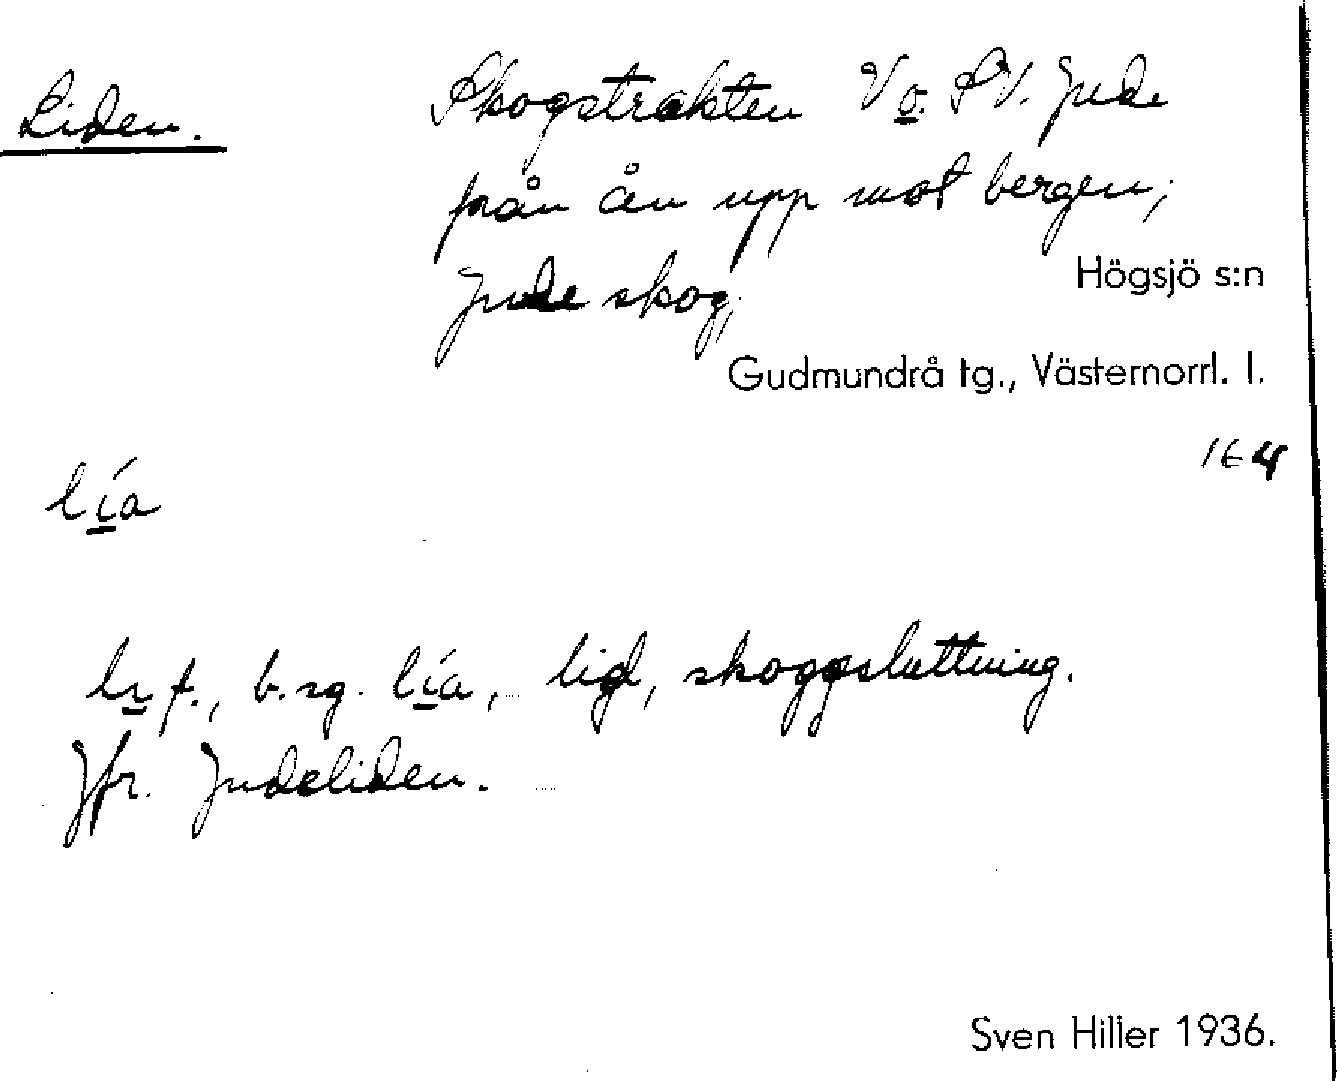 Liden.
Skogstrakten V o. SV. Jude
från ån upp mot bergen;
Jude skog;
Högsjö s:n
Gudmundrå tg., Västernorrl. l.
164
lía
f., b. sg. lía, lid, skogssluttning.
Jfr. Judeliden.
Sven Hiller 1936.